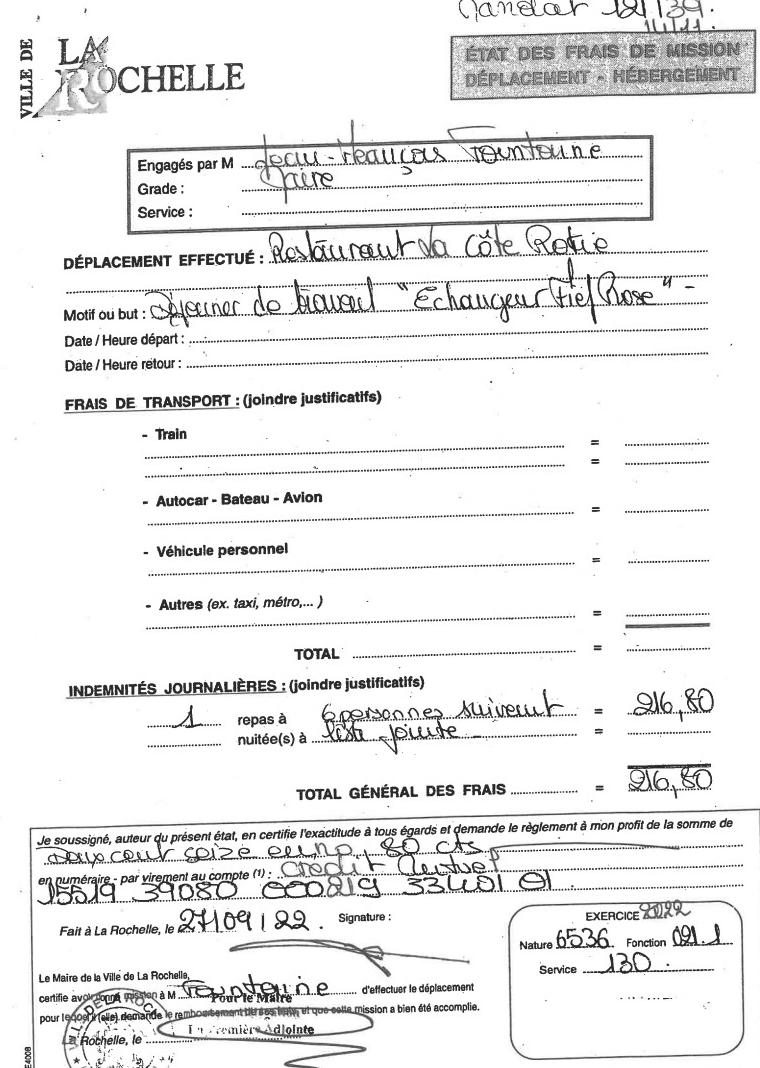 Mandat 12139.
14/11.
VILLE DE
LA
ROCHELLE
ÉTAT DES FRAIS DE MISSION
DÉPLACEMENT - HÉBERGEMENT
Engagés par M Jean-François Fountaine
Grade : Maire
Service :
DÉPLACEMENT EFFECTUÉ : Restaurant La Côte Rotie
Motif ou but : Déjeuner de travail "Echangeur Fief Rose" -
Date / Heure départ :
Date / Heure retour :
FRAIS DE TRANSPORT : (joindre justificatifs)
- Train
=
=
- Autocar - Bateau - Avion
=
- Véhicule personnel
=
- Autres (ex. taxi, métro,... )
=
TOTAL =
INDEMNITÉS JOURNALIÈRES : (joindre justificatifs)
1 repas à 6 personnes suivant = 216,80
nuitée(s) à liste jointe - =
TOTAL GÉNÉRAL DES FRAIS = 216,80
Je soussigné, auteur du présent état, en certifie l'exactitude à tous égards et demande le règlement à mon profit de la somme de
Deux cent seize euros 80 cts
en numéraire - par virement au compte (1) : Crédit Mutuel
15519 39080 000219 33401 01.
Fait à La Rochelle, le 27/09/22. Signature :
EXERCICE 2022
Nature 6536. Fonction 021.1
Service 130.
Le Maire de la Ville de La Rochelle,
certifie avoir donné mission à M Fountaine d'effectuer le déplacement
Pour le Maire
pour lequel (elle) demande le remboursement de ses frais, et que cette mission a bien été accomplie.
La Première Adjointe
La Rochelle, le
VILLE DE LA ROCH
E4008